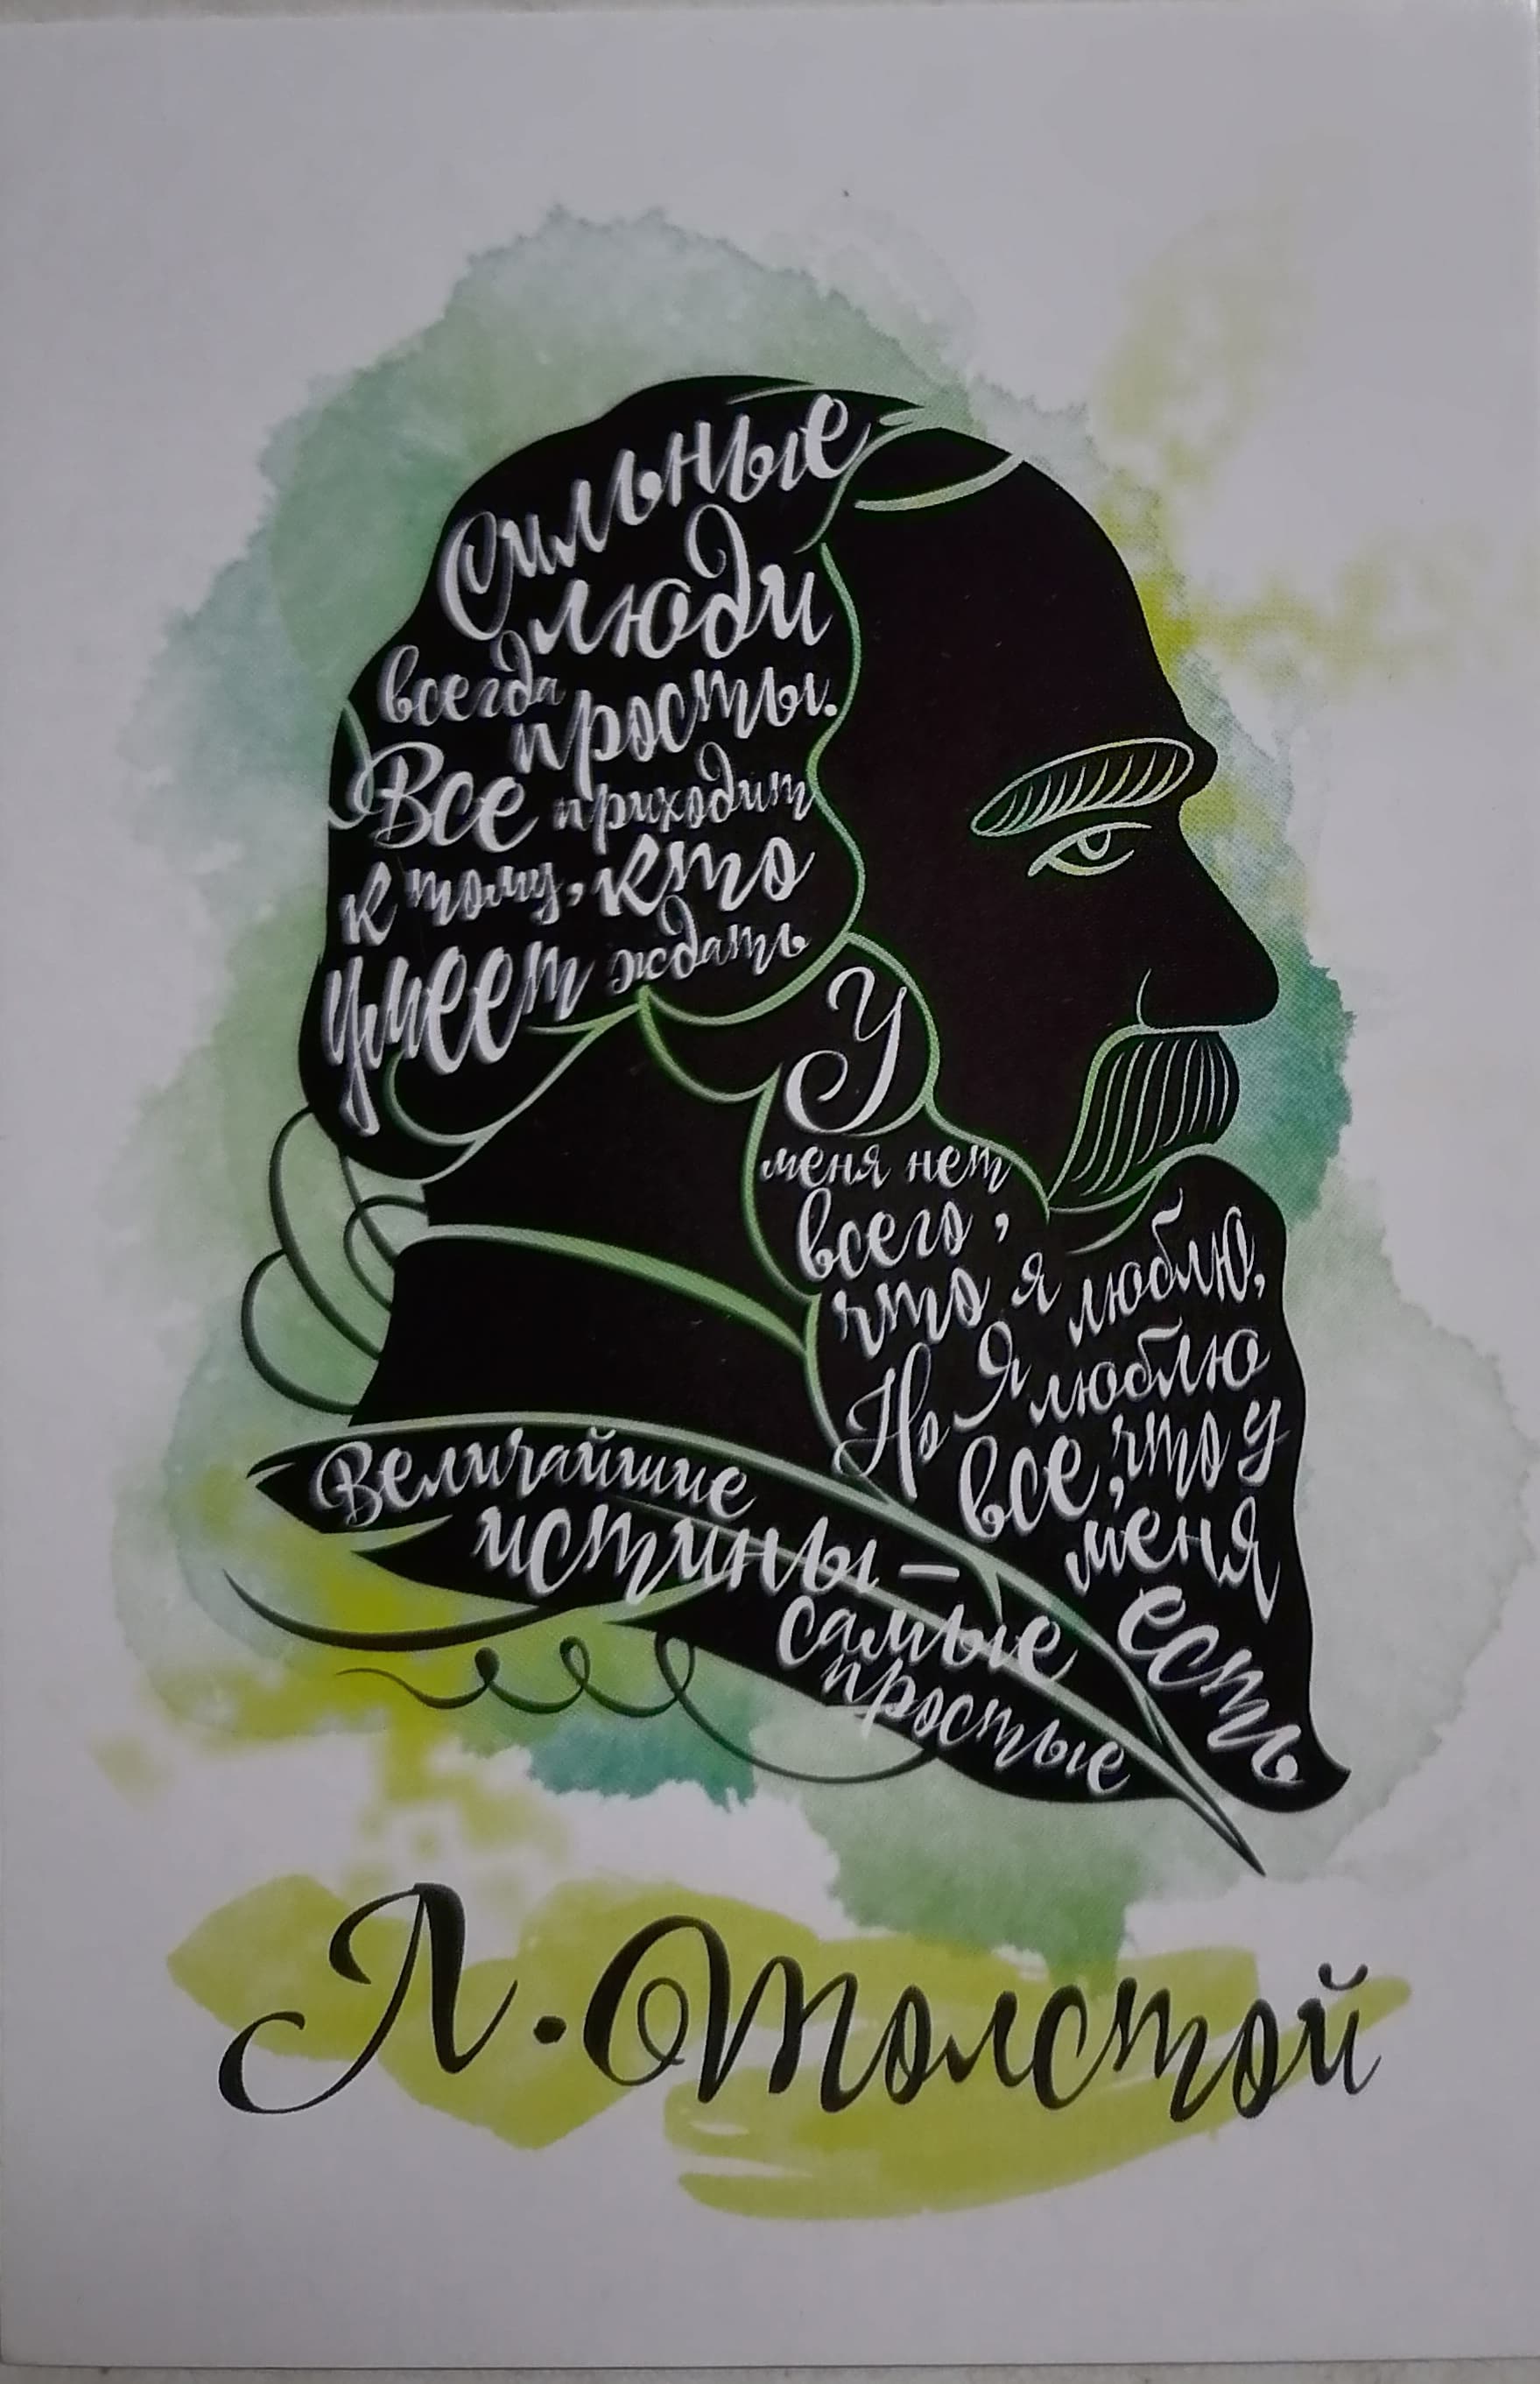 Сильные
люди
всегда
просты.
Все приходит
к тому, кто
умеет ждать
У
меня нет
всего,
что я люблю,
Но Я люблю
все, что у
меня
есть
Величайшие
истины –
самые
простые
Л. Толстой